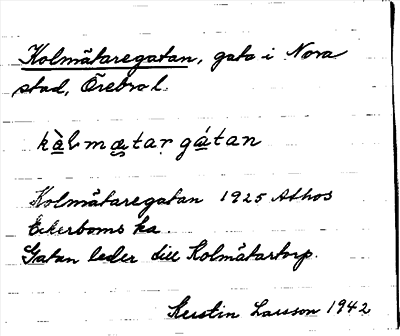 Kolmätaregatan, gata i Nora
stad, Örebro l.
Kolmätaregatan 1925 Athos
Ekerboms ka.
Gatan leder till Kolmätartorp.
Kerstin Larsson 1942